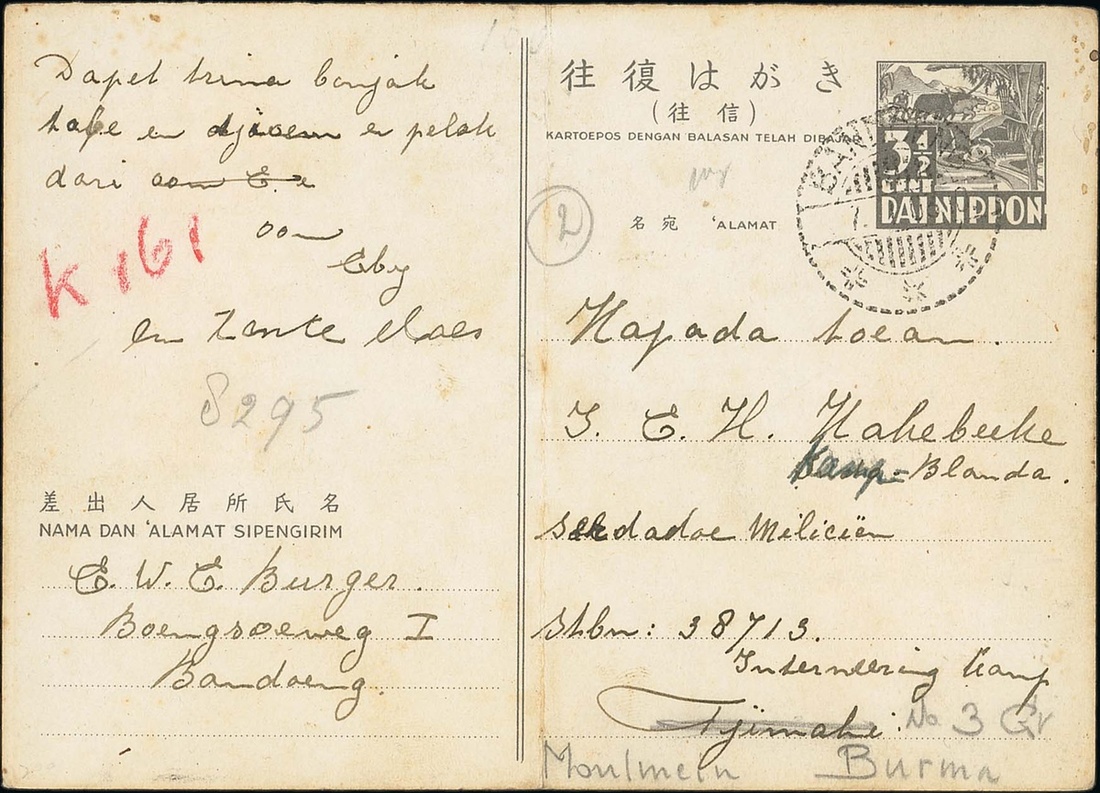 Dapet trima banjak
tabe en djioem e pelok
dari oom E. e
oom
Eby
en tante Loes
K 161
8295
差出人居所氏名
NAMA DAN ‘ALAMAT SIPENGIRIM
E. W. E. Burger.
Boengsoeweg I
Bandoeng.
往復はがき
(往信)
KARTOEPOS DENGAN BALASAN TELAH DIBAJAR
3 1/2
CENT
DAI NIPPON
2
名宛 ‘ALAMAT
Kapada toean.
J. E. H. Hakebeeke
Kamp = Blanda.
Soldadoe Miliciën
Stbn: 38713.
Interneering Kamp
Tjimahi. No 3 Gr
Moulmein Burma